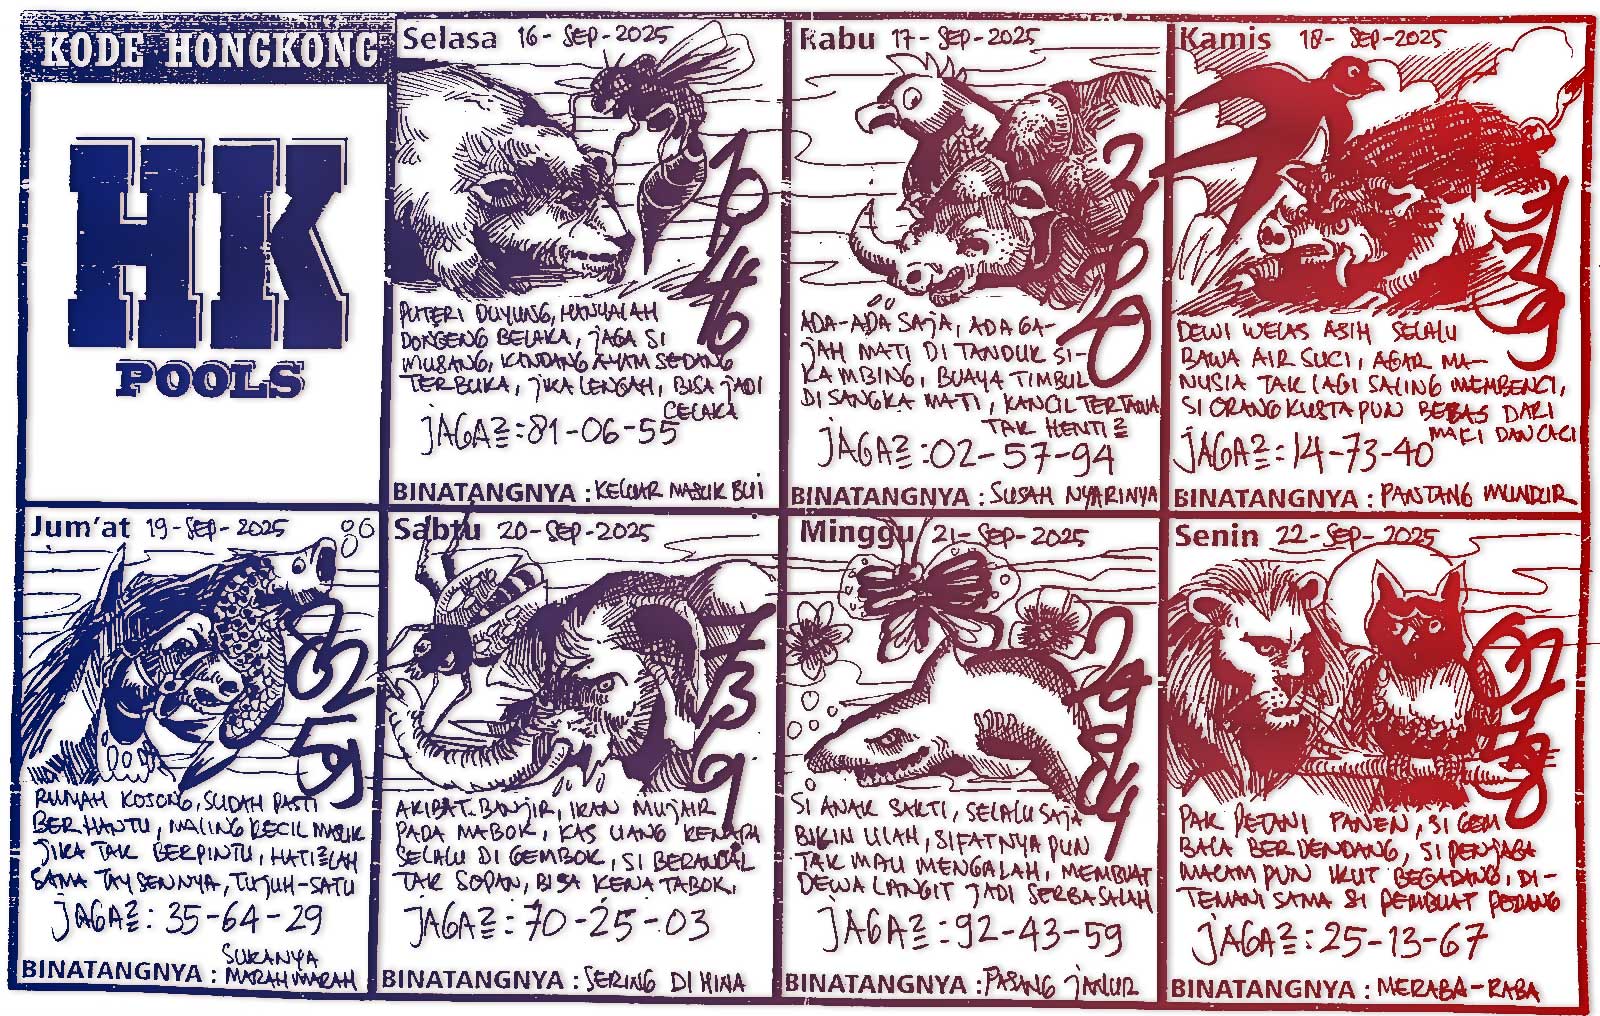 KODE HONGKONG
HK
POOLS
Selasa 16-SEP-2025
10
46
PUTERI DUYUNG, HANYALAH
DONGENG BELAKA, JAGA SI
MUSANG, KANDANG AYAM SEDANG
TERBUKA, JIKA LENGAH, BISA JADI
CELAKA
JAGA2 : 81-06-55
BINATANGNYA : KELUAR MASUK BUI
Rabu 17-SEP-2025
ADA-ADA SAJA, ADA GA-
JAH MATI DI TANDUK SI-
KAMBING, BUAYA TIMBUL
DI SANGKA MATI, KANCIL TERTAWA
TAK HENTI2
JAGA2 : 02-57-94
BINATANGNYA : SUSAH NYARINYA
Kamis 18-SEP-2025
DEWI WELAS ASIH SELALU
BAWA AIR SUCI, AGAR MA-
NUSIA TAK LAGI SALING MEMBENCI,
SI ORANG KUSTA PUN BEBAS DARI
MAKI DAN CACI
JAGA2 : 14-73-40
BINATANGNYA : PANTANG MUNDUR
Jum'at 19-SEP-2025
82
59
RUMAH KOSONG, SUDAH PASTI
BERHANTU, MALING KECIL MASUK
JIKA TAK BERPINTU, HATI2LAH
SAMA TAYSENNYA, TUJUH-SATU
JAGA2 : 35-64-29
SUKANYA
BINATANGNYA : MARAH MARAH
Sabtu 20-SEP-2025
73
69
AKIBAT BANJIR, IKAN MUJAIR
PADA MABOK, KAS UANG KENAPA
SELALU DI GEMBOK, SI BERANDAL
TAK SOPAN, BISA KENA TABOK.
JAGA2 : 70-25-03
BINATANGNYA : SERING DI HINA
Minggu 21-SEP-2025
29
04
SI ANAK SAKTI, SELALU SAJA
BIKIN ULAH, SIFATNYA PUN
TAK MAU MENGALAH, MEMBUAT
DEWA LANGIT JADI SERBA SALAH
JAGA2 : 92-43-59
BINATANGNYA : PASANG JANUR
Senin 22-SEP-2025
PAK PETANI PANEN, SI GEM
BALA BERDENDANG, SI PENJAGA
MALAM PUN IKUT BEGADANG, DI-
TEMANI SAMA SI PEMBUAT PEDANG
JAGA2 : 25-13-67
BINATANGNYA : MERABA-RABA